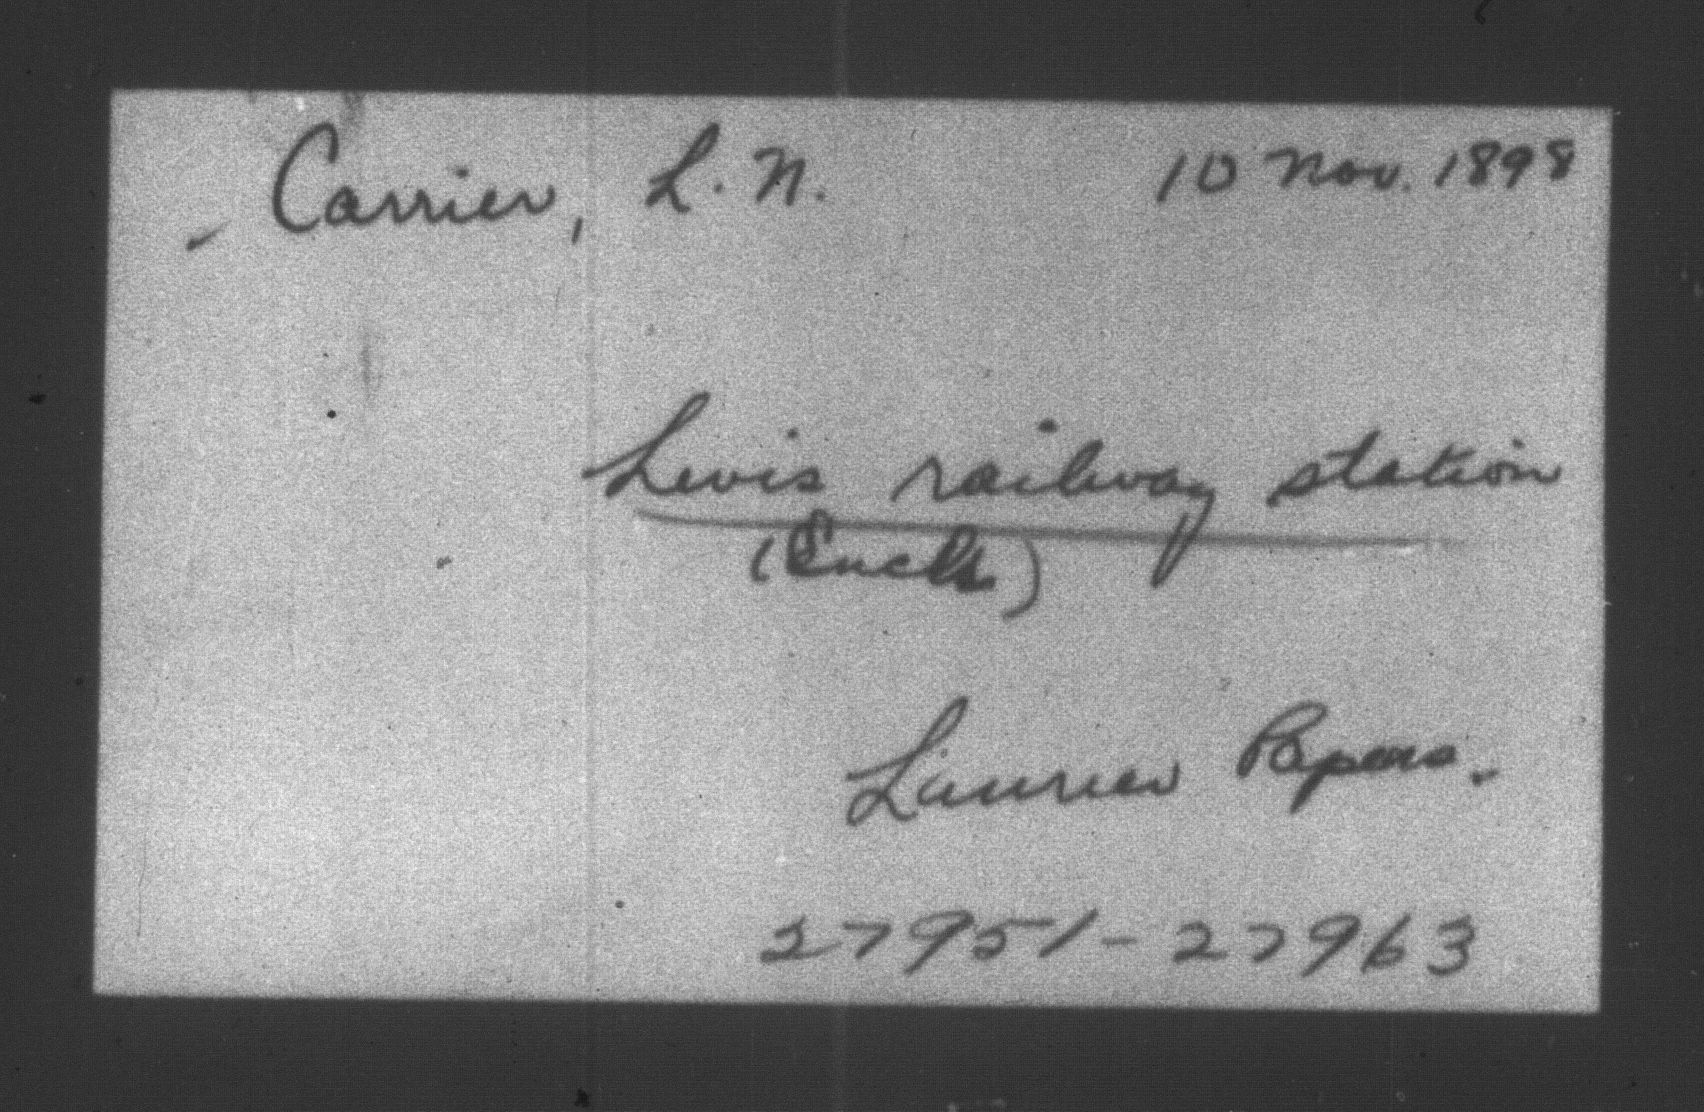 Carrier, L. N. 10 Nov. 1898
Levis railway station
(Encls)
Laurier Papers.
27951-27963